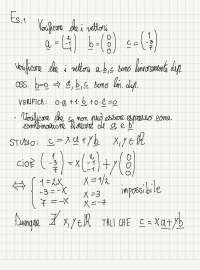 Es. 1
Verificare che i vettori
a = (2 -1 -1) b = (0 0 0) c = (1 -3 7)
Verificare che i vettori a, b, c sono linearmente dip.
OSS. b = 0 ⇒ a, b, c sono lin. dip.
VERIFICA: 0·a + 1·b + 0·c = 0
· Verificare che c non può essere espresso come
combinazione lineare di a e b
STUDIO: c = xa + yb x, y ∈ ℝ
CIOÈ (1 -3 7) = x(2 -1 -1) + y(0 0 0)
⇔ { 1 = 2x x = 1/2
-3 = -x x = 3 impossibile
7 = -x x = -7
Dunque ∄ x, y ∈ ℝ TALI CHE c = xa + yb